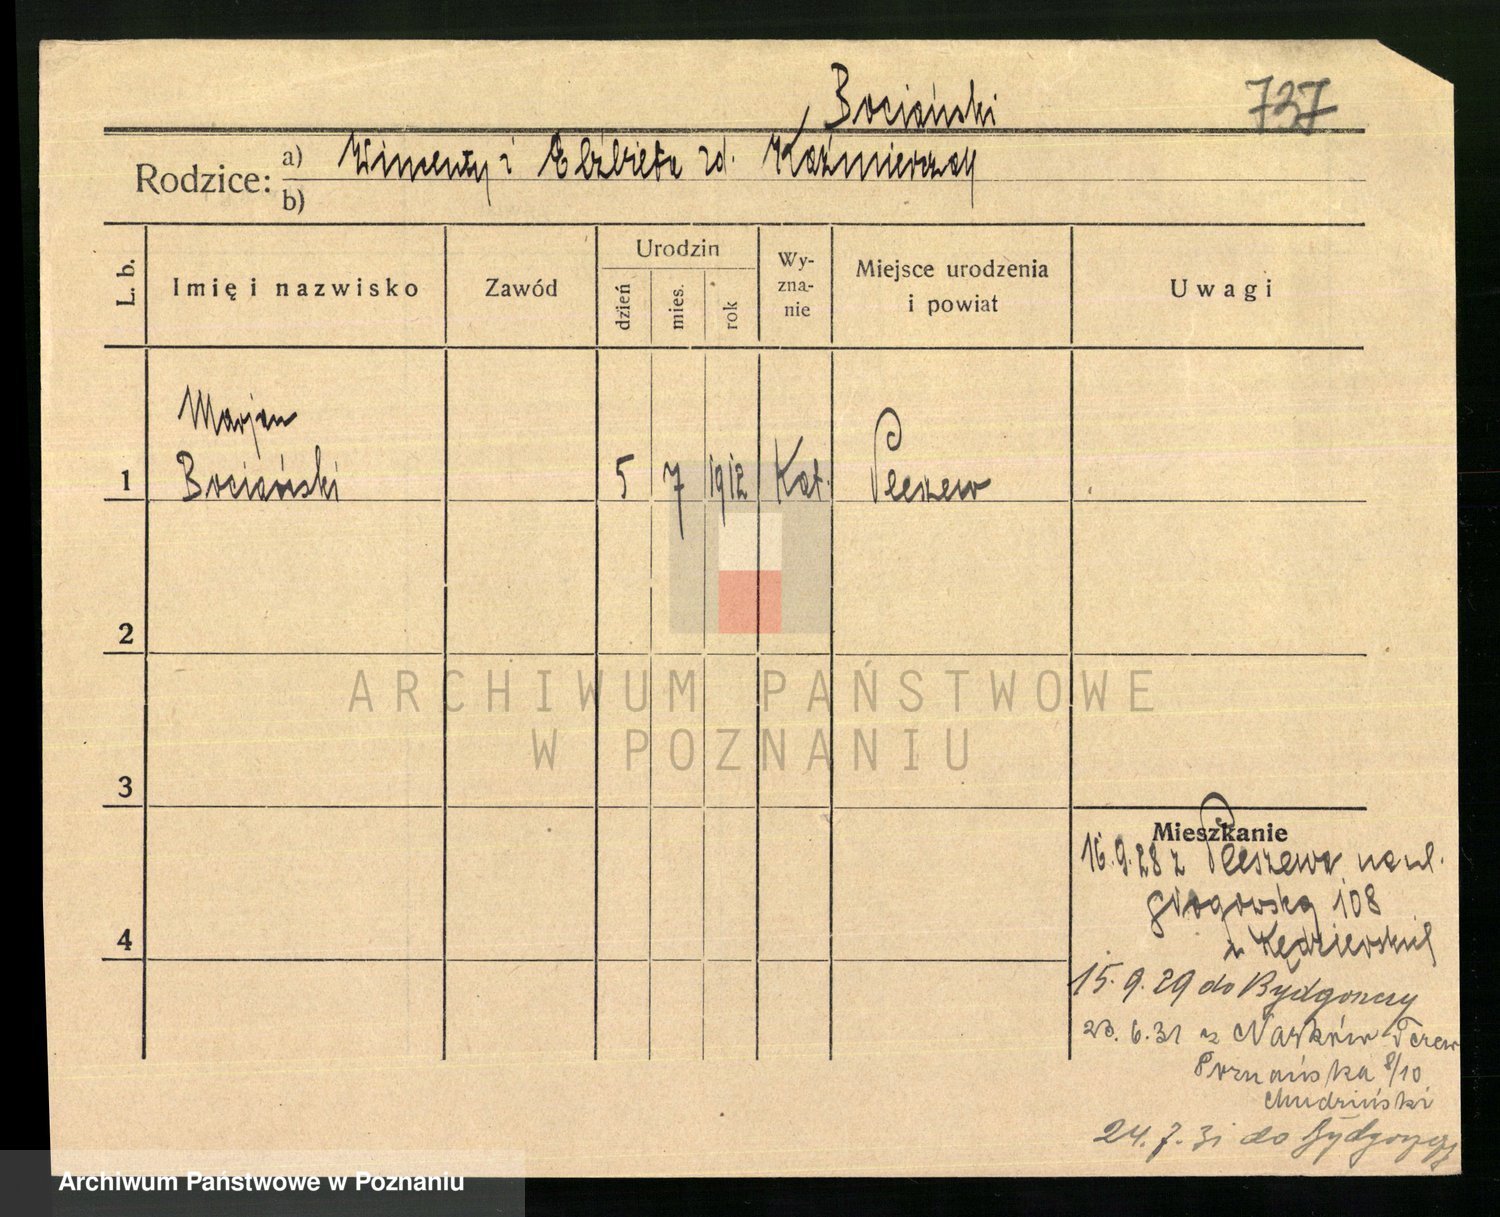 Bociański
737
Rodzice: a) Wincenty i Elżbieta zd. Kaźmierczak
b)
L. b.
Imię i nazwisko
Zawód
Urodzin
dzień
mies.
rok
Wy-
zna-
nie
Miejsce urodzenia
i powiat
Uwagi
Marjan
1 Bociański 5 7 1912 Kat. Pleszew
2
ARCHIWUM PAŃSTWOWE
W POZNANIU
3
Mieszkanie
16.9.28 z Pleszewa na ul.
Głogowską 108
15.9.29 do Bydgoszczy
23.6.31 z Narków Tczew
Poznańska 8/10
Chudziński
4
24.7.31 do Bydgoszczy
Archiwum Państwowe w Poznaniu